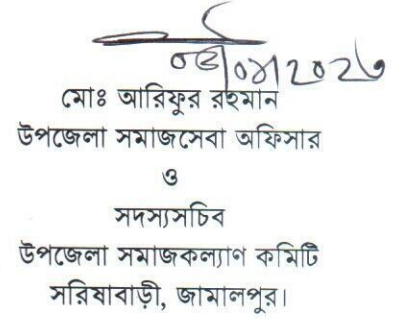 মোঃ আরিফুর রহমান
উপজেলা সমাজসেবা অফিসার
ও
সদস্যসচিব
উপজেলা সমাজকল্যাণ কমিটি
সরিষাবাড়ী, জামালপুর।